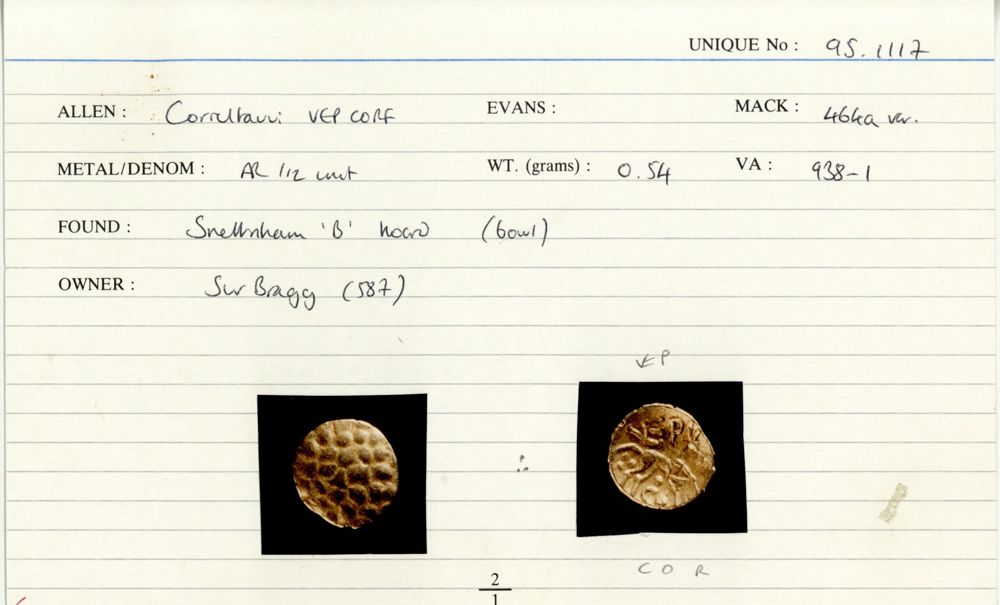 UNIQUE No : 95.1117
ALLEN : Corieltauvi VEP CORF EVANS : MACK : 464a var.
METAL/DENOM : AR 1/2 unit WT. (grams) : 0.54 VA : 938-1
FOUND : Snettisham 'B' hoard (bowl)
OWNER : Bragg (587)
VEP
VEP
COR
2
1